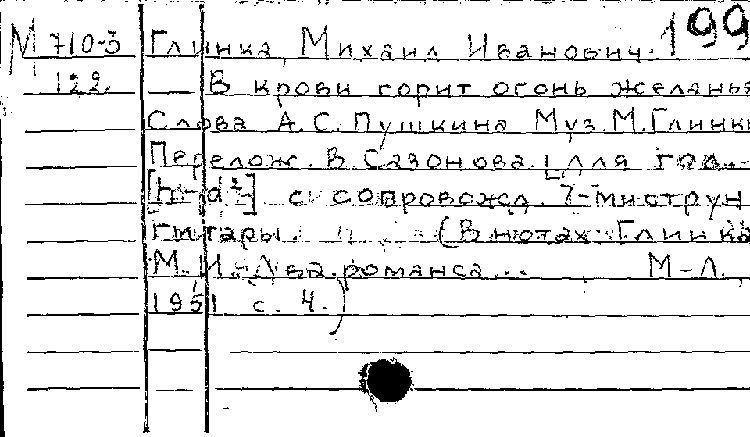 М 710-3 Глинка, Михаил Иванович. 199
122 В крови горит огонь желанья
Слова А.С. Пушкина Муз. М. Глинки
Перелож. В. Сазонова. [Для гол.
[h-d²] с сопровожд. 7-миструн
гитары. (В нотах: Глинка
М.И. Два романса... М-Л.
1951 с. 4.)